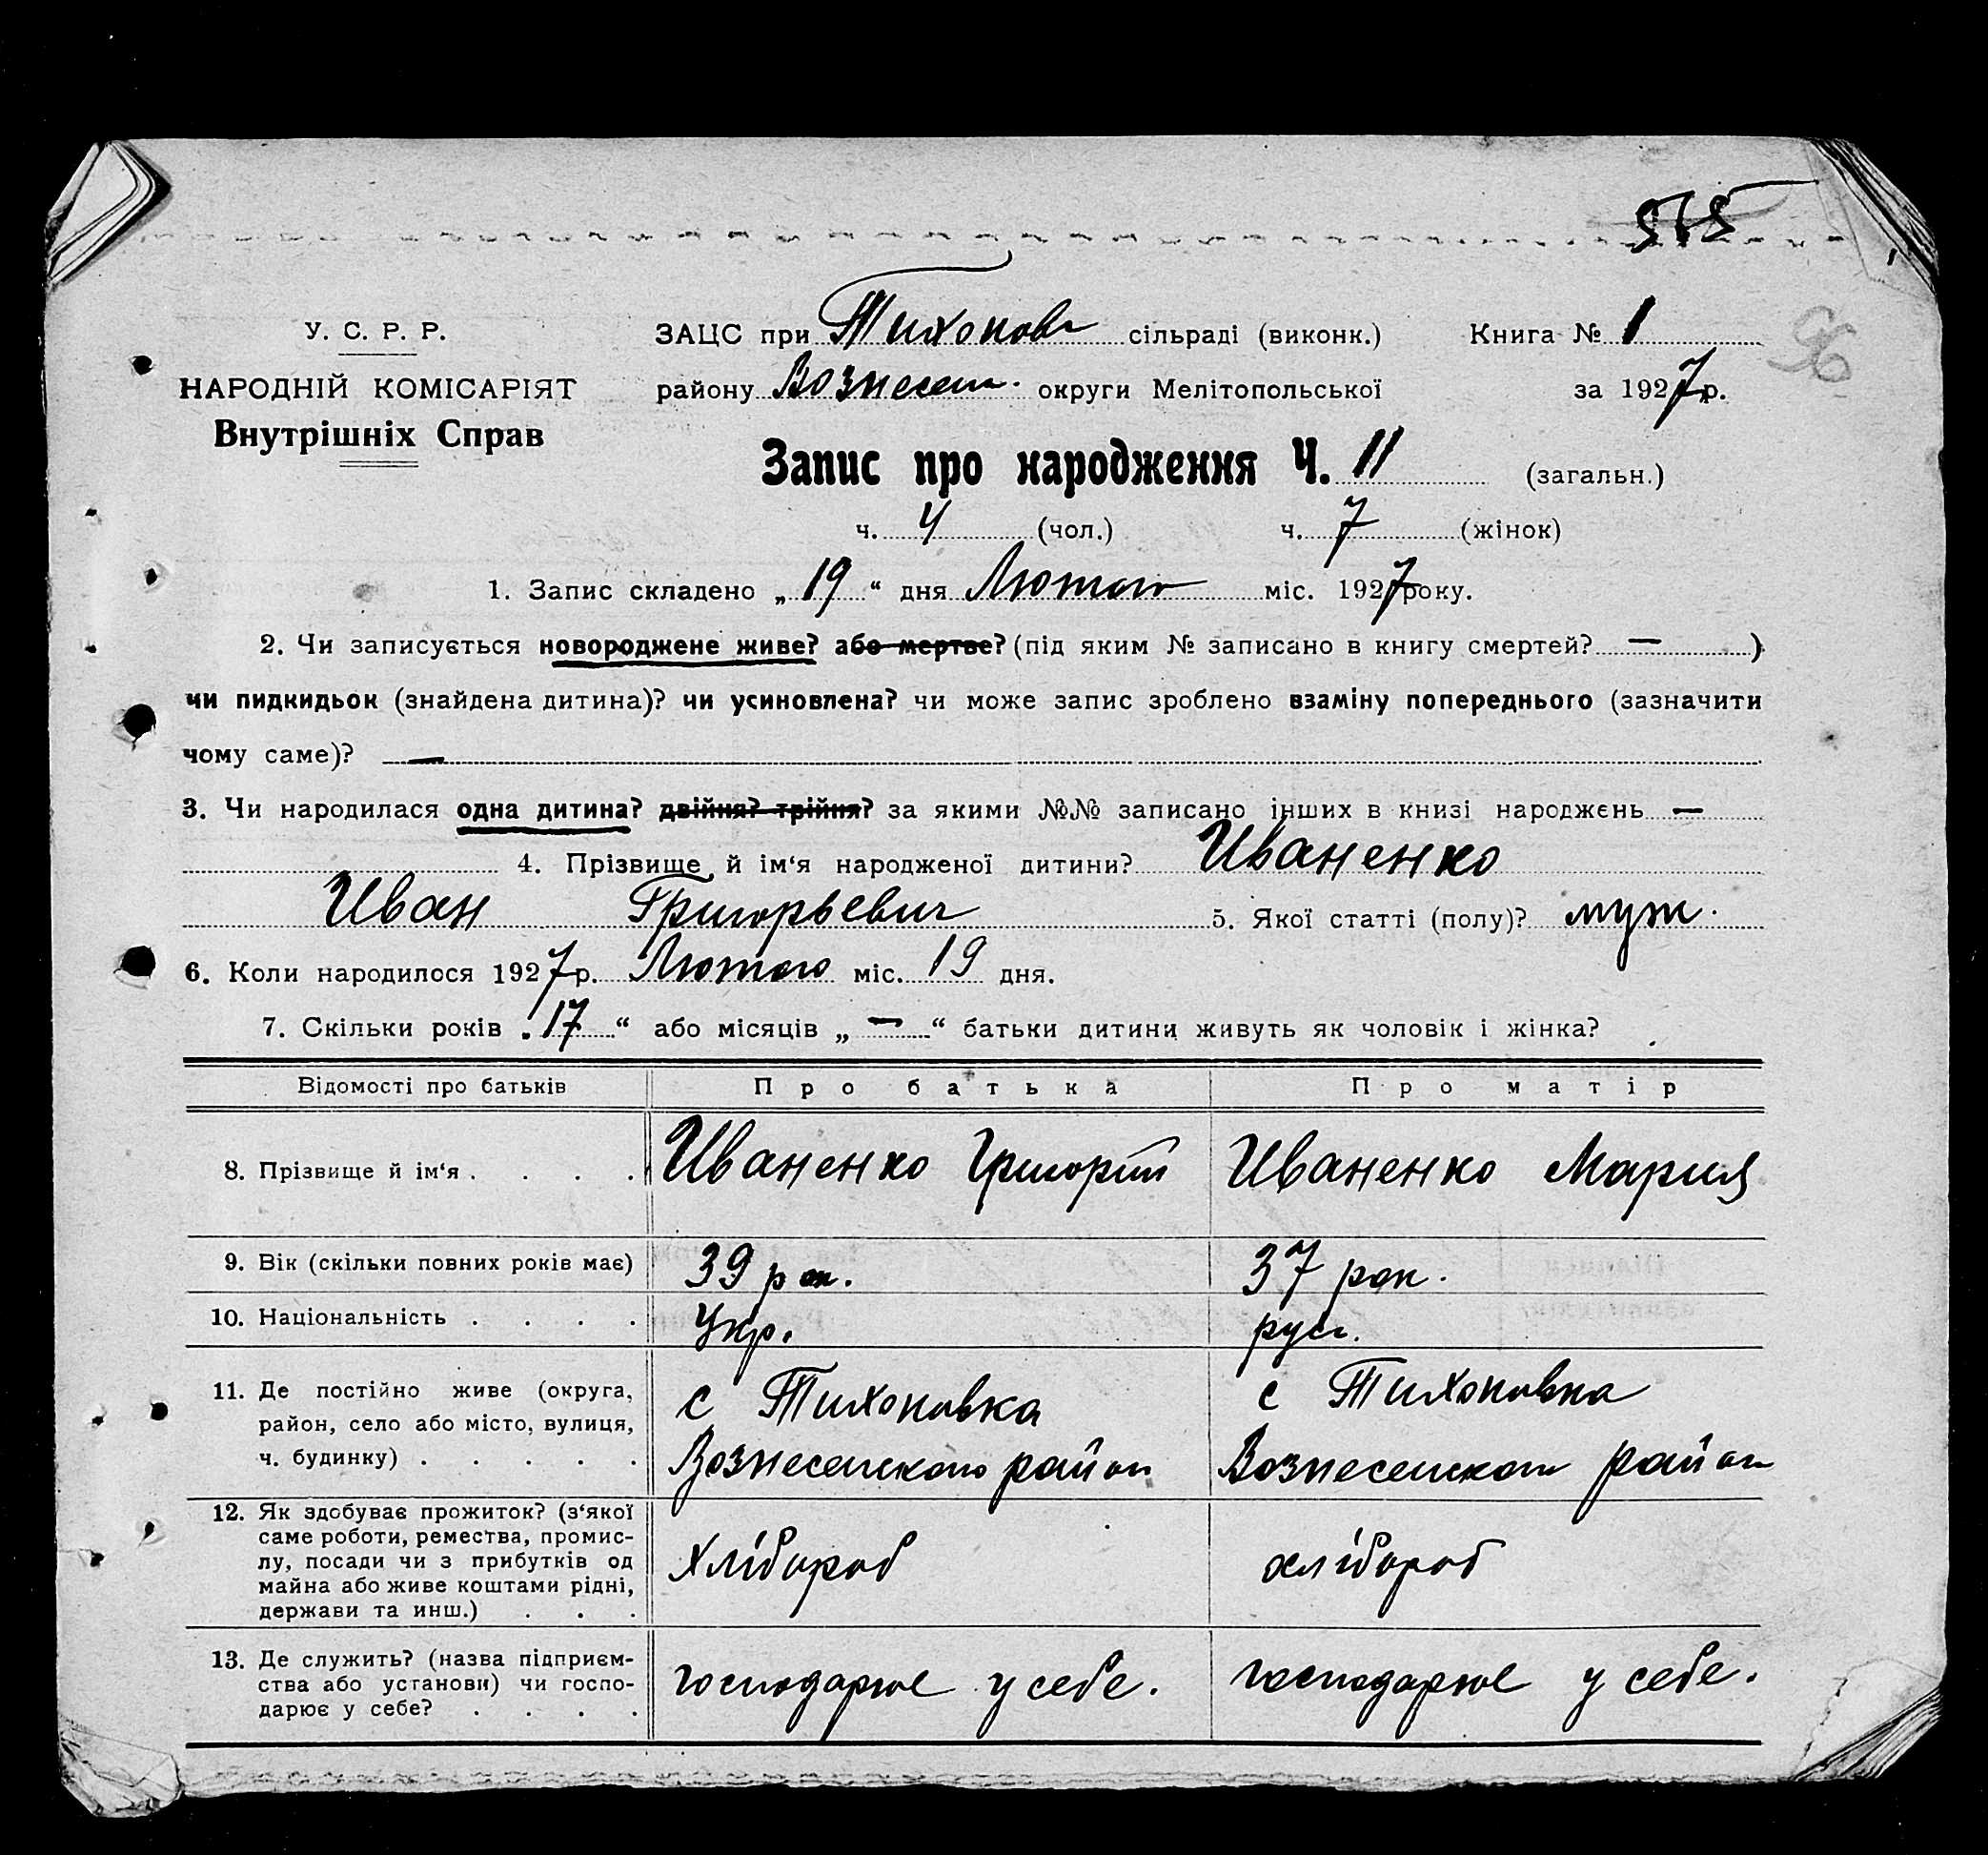 575
96
У. С. Р. Р.
НАРОДНІЙ КОМІСАРІЯТ
Внутрішніх Справ
ЗАЦС при Тихонов сільраді (виконк.) Книга № 1
району Вознесен. округи Мелітопольської за 1927 р.
Запис про народження Ч. 11 (загальн.)
ч. 4 (чол.) ч. 7 (жінок)
1. Запис складено „19“ дня Лютого міс. 1927 року.
2. Чи записується новороджене живе? або мертве? (під яким № записано в книгу смертей? — )
чи пидкидьок (знайдена дитина)? чи усиновлена? чи може запис зроблено взаміну попереднього (зазначити
чому саме)? —
3. Чи народилася одна дитина? двійня? трійня? за якими №№ записано інших в книзі народжень —
4. Прізвище й ім‘я народженої дитини? Иваненко
Иван Григорьевич 5. Якої статті (полу)? муж.
6. Коли народилося 1927 р. Лютого міс. 19 дня.
7. Скільки років „17“ або місяців „ — “ батьки дитини живуть як чоловік і жінка?
Відомості про батьків Про батька Про матір
8. Прізвище й ім‘я . . . . Иваненко Григорий Иваненко Мария
9. Вік (скільки повних років має) 39 рок. 37 рок.
10. Національність . . . . Укр. русс.
11. Де постійно живе (округа, с Тихоновка с Тихоновка
район, село або місто, вулиця,
ч. будинку) . . . . . Вознесенского район Вознесенского район
12. Як здобуває прожиток? (з‘якої
саме роботи, ремества, промис-
лу, посади чи з прибутків од Хлібороб хлібороб
майна або живе коштами рідні,
держави та инш.) . . .
13. Де служить? (назва підприєм-
ства або установи) чи госпо- господарює у себе. господарює у себе.
дарює у себе? . . . .